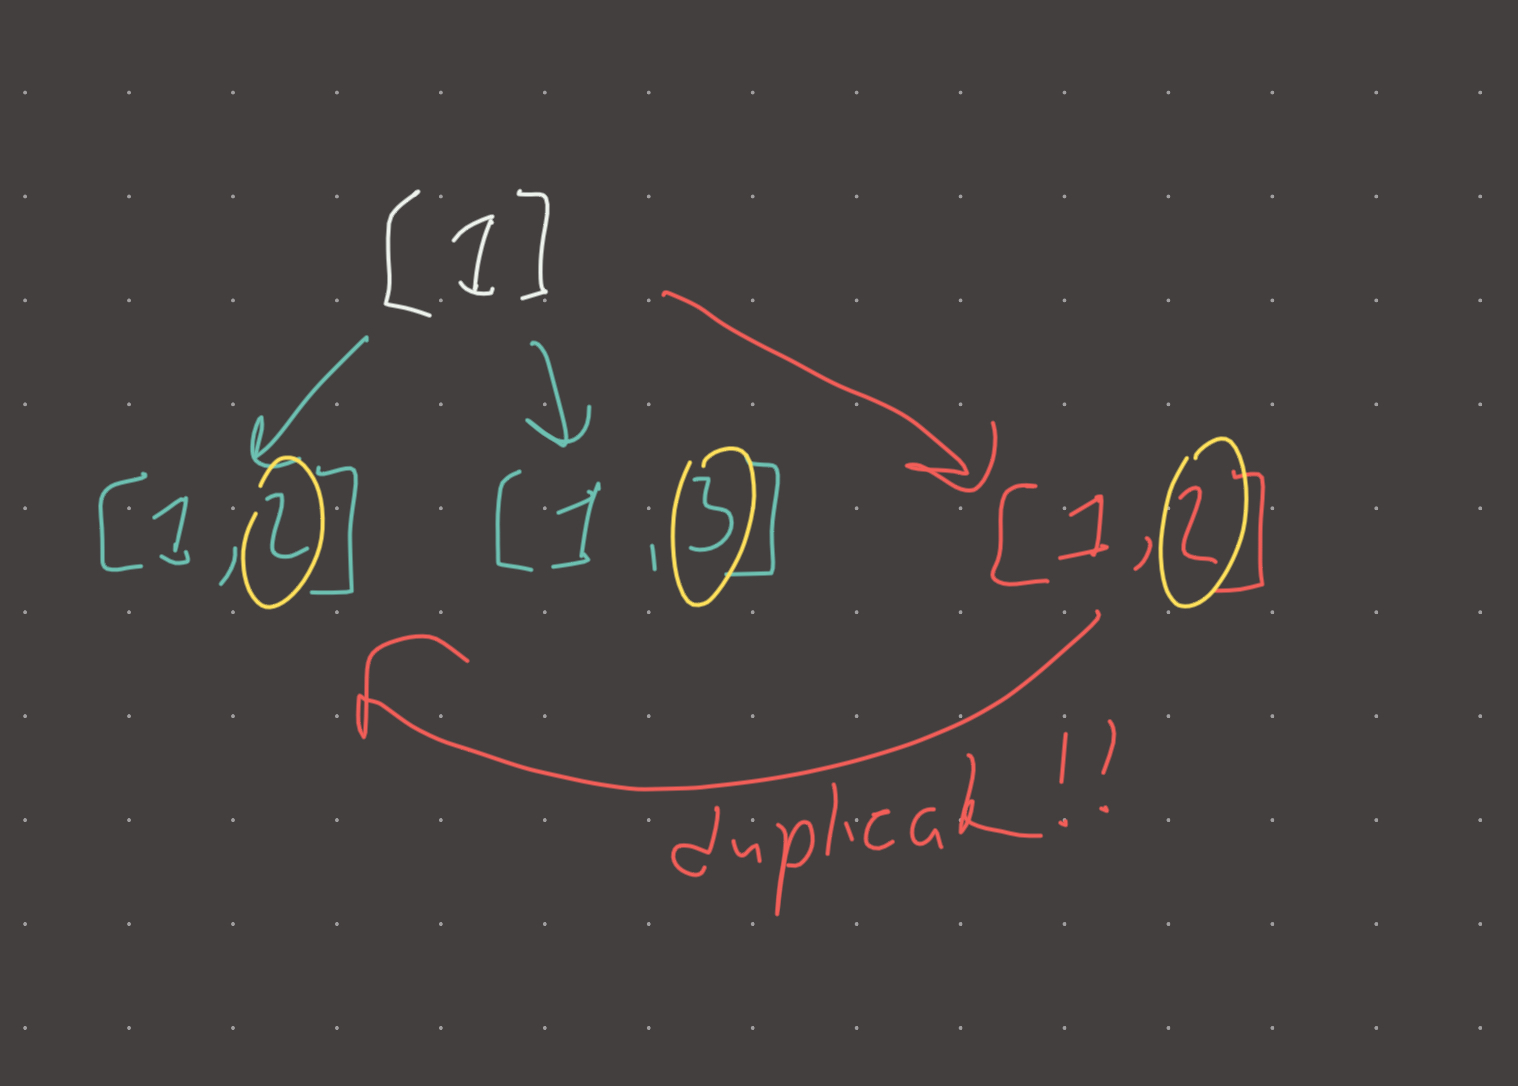 [1]
[1,2] [1,3] [1,2]
duplicate!!